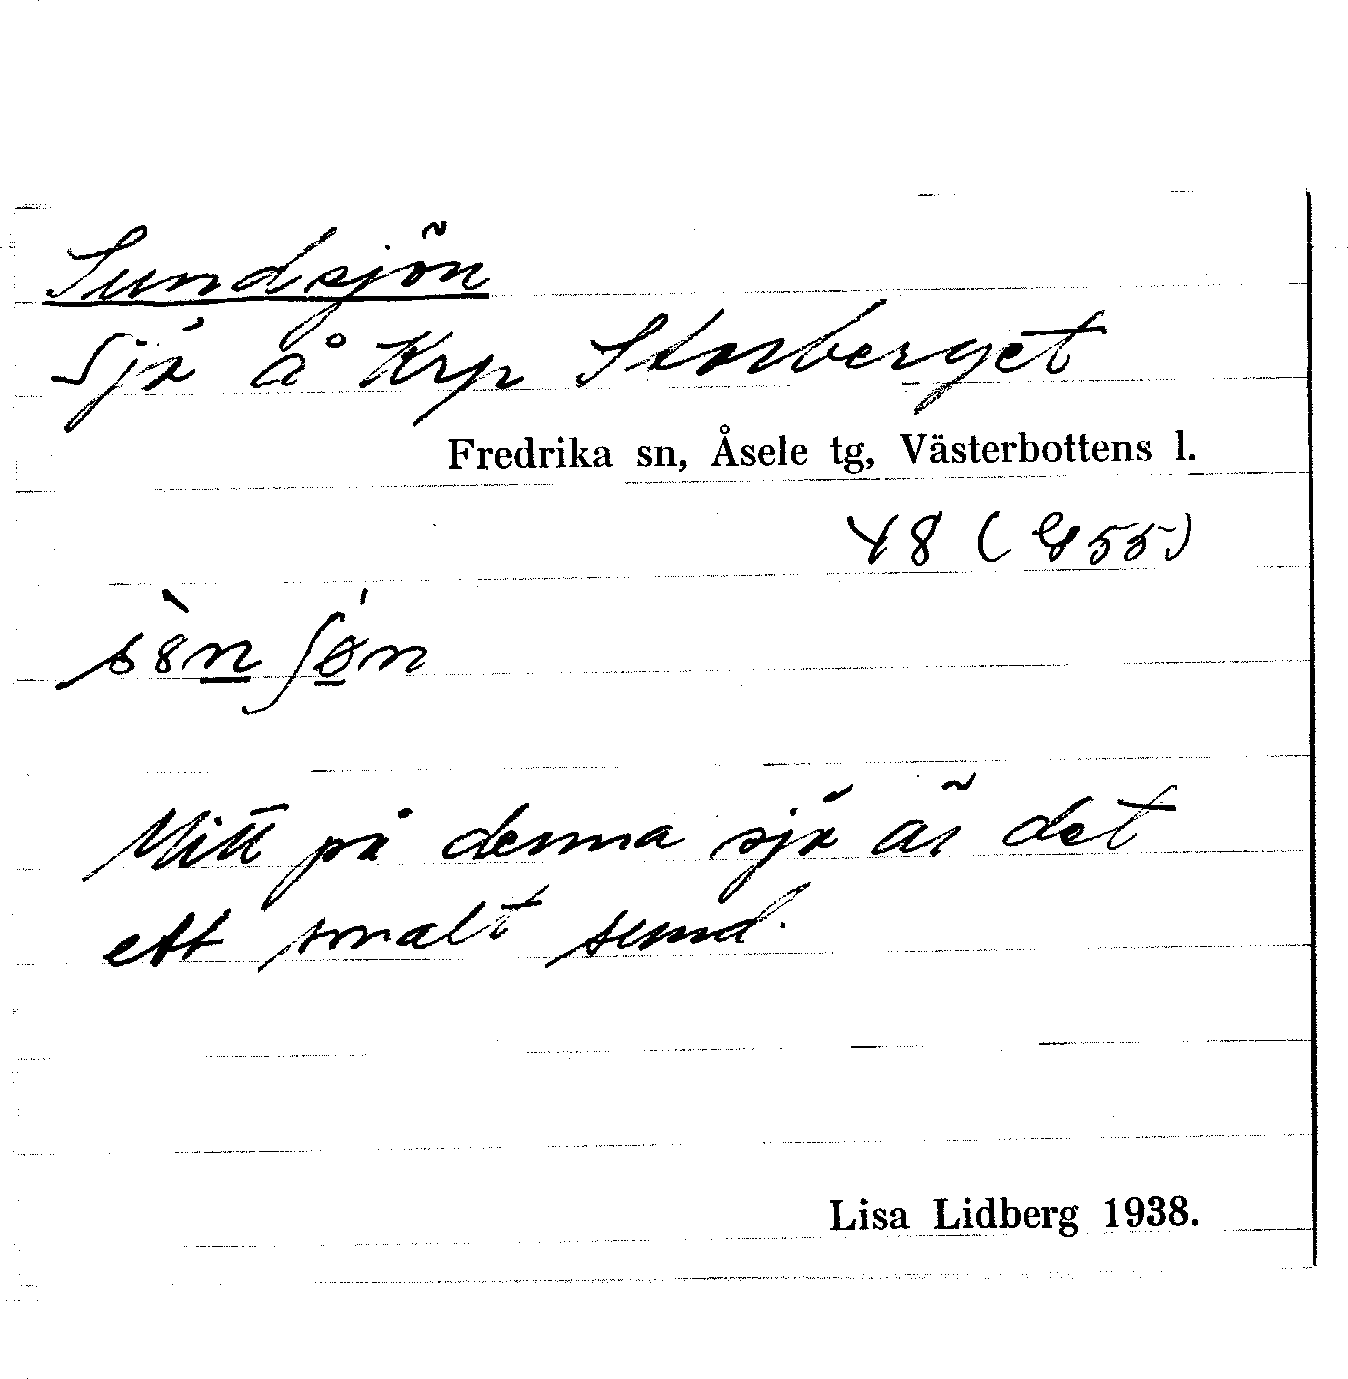 Sundsjön
Sjö å Krp Storberget
Fredrika sn, Åsele tg, Västerbottens l.
48 (G55)
Mitt på denna sjö är det
ett smalt sund.
Lisa Lidberg 1938.